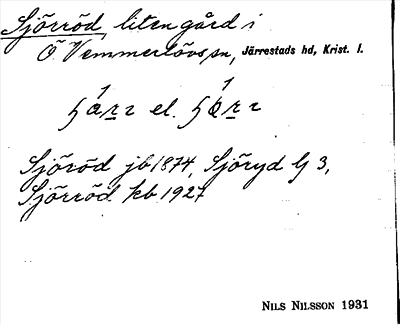 Sjörröd, liten gård i
Ö Vemmerlövs sn, Järrestads hd, Krist. l.
el.
Sjöröd jb 1874, Sjöryd G 3,
Sjörröd kb 1927
NILS NILSSON 1931